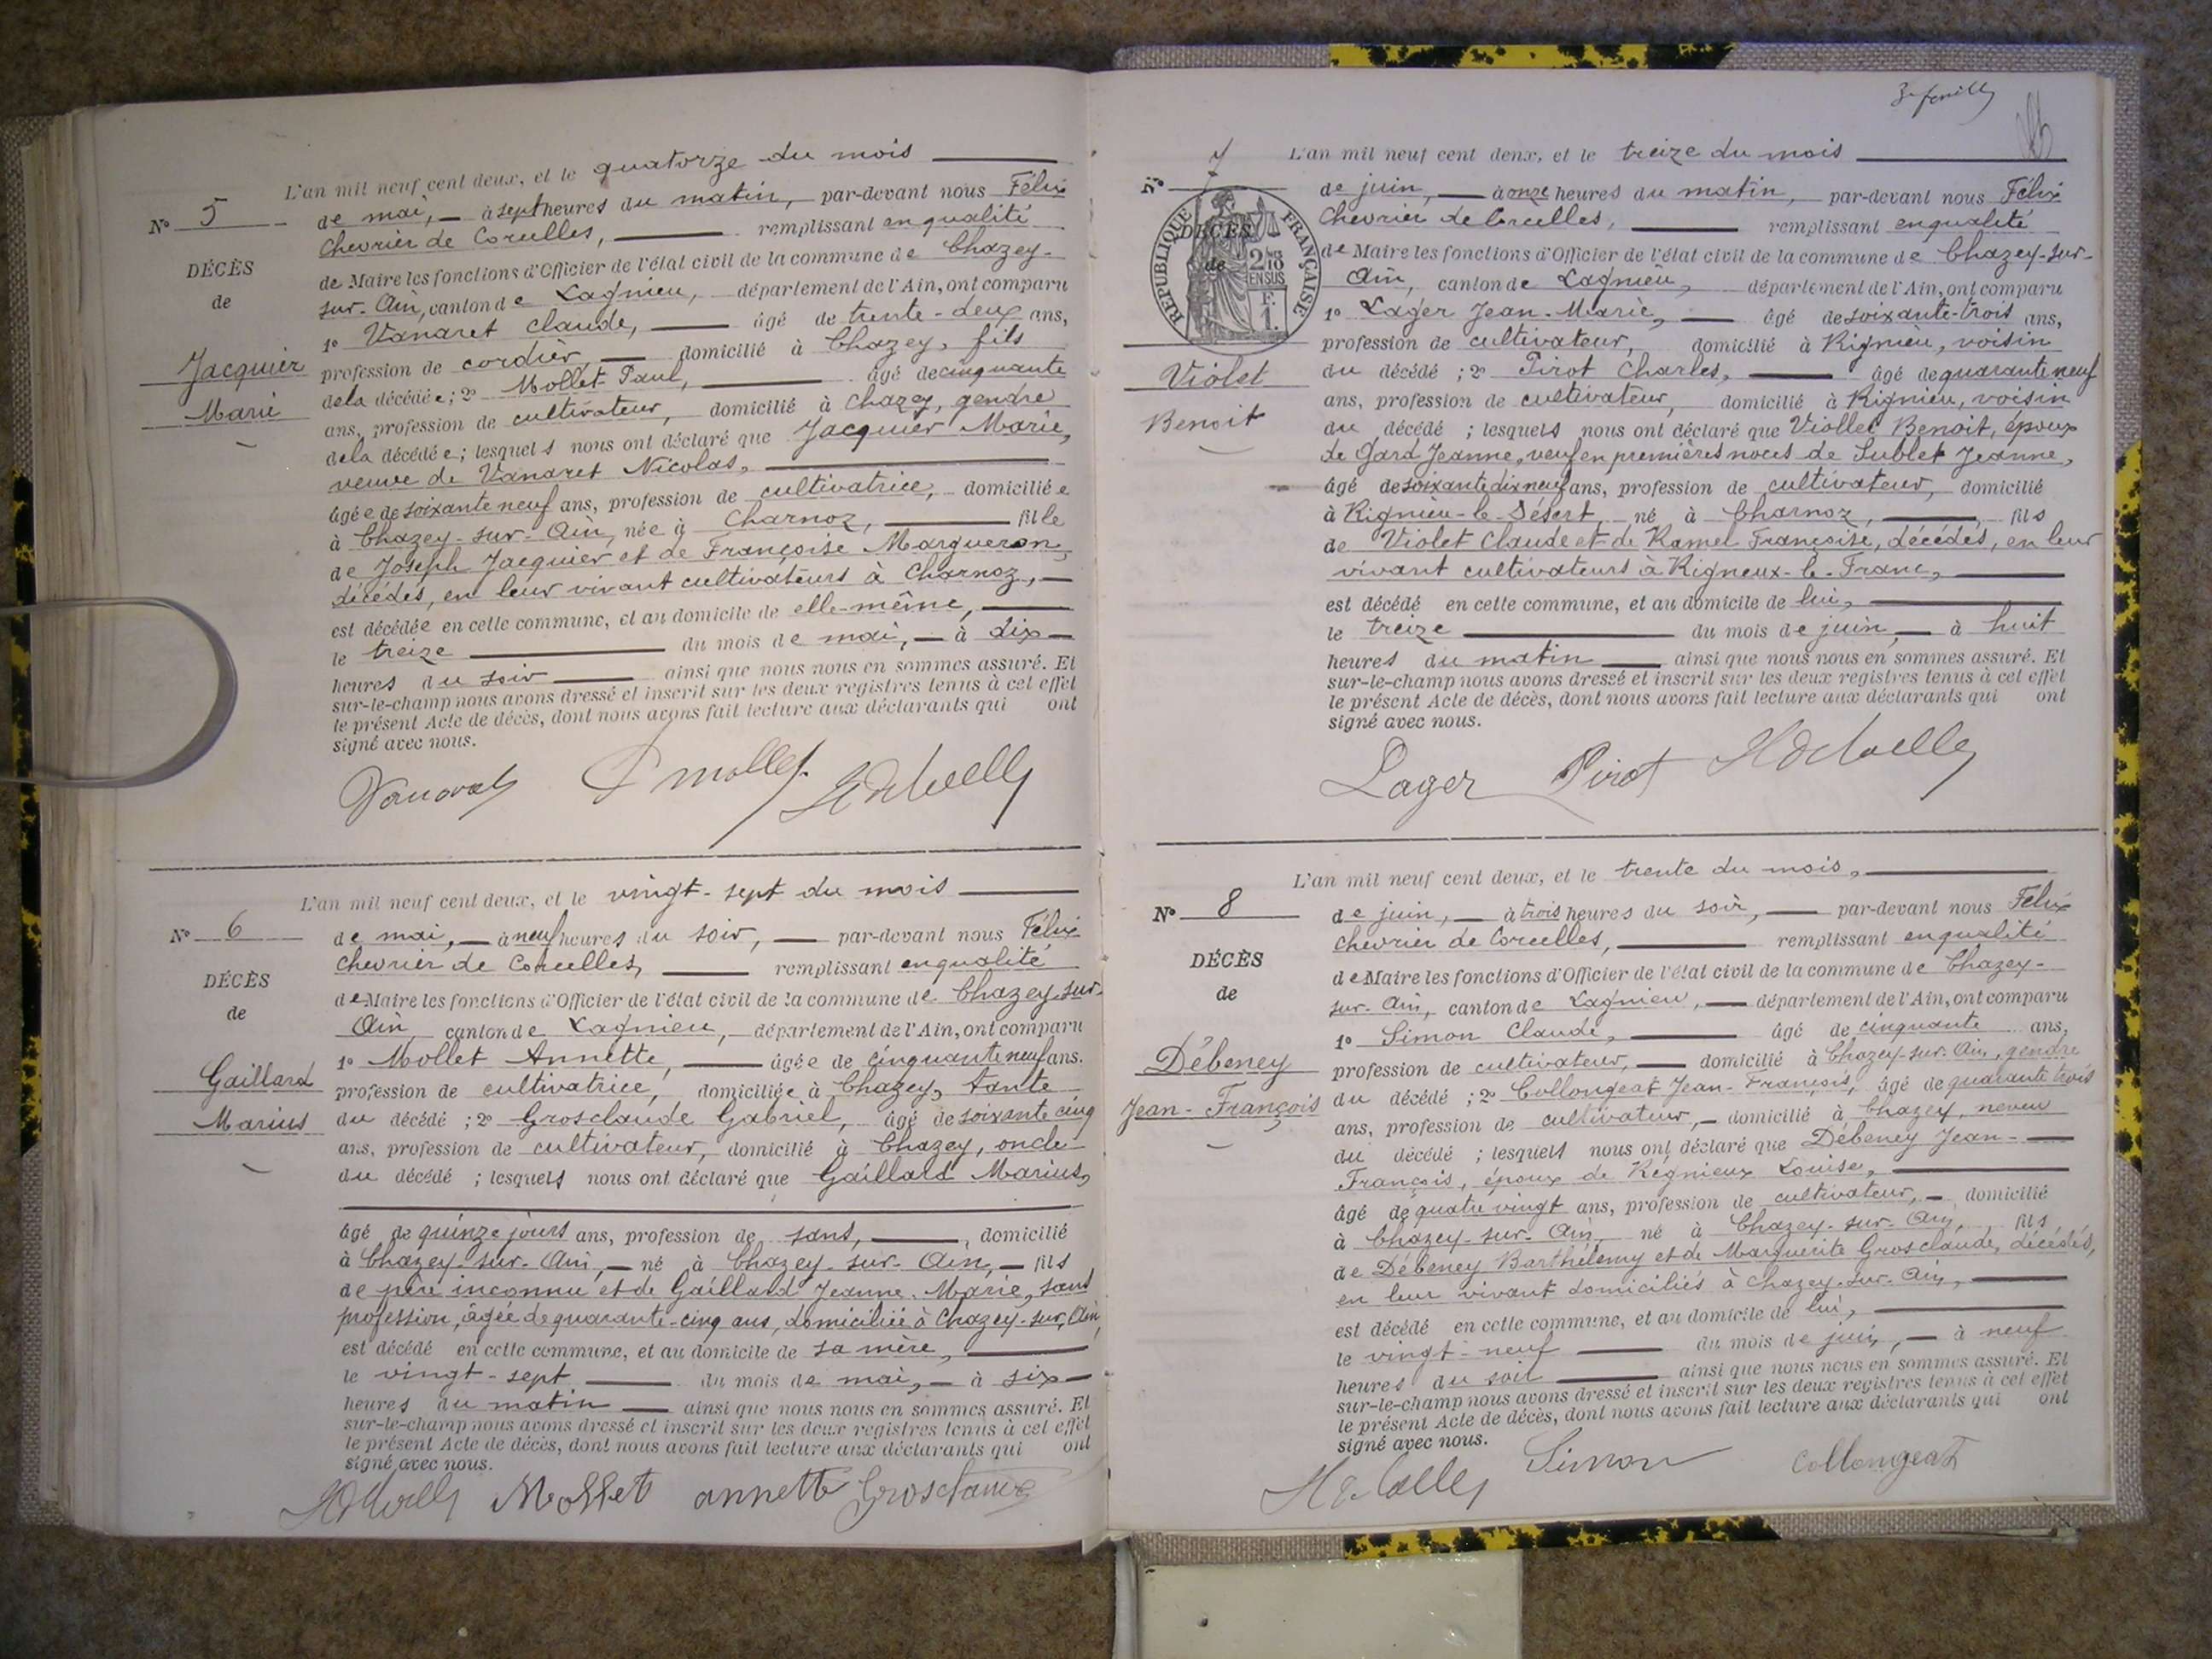 L'an mil neuf cent deux, et le quatorze du mois
N° 5
de mai, à sept heures du matin, par-devant nous Félix
Chevrier de Corcelles, remplissant en qualité
DÉCÈS
de
de Maire les fonctions d'Officier de l'état civil de la commune de Chazey-
sur-Ain, canton de Lagnieu, département de l'Ain, ont comparu
1° Vanaret Claude, âgé de trente-deux ans,
Jacquier
Marie
profession de cordier, domicilié à Chazey, fils
de la décédée; 2° Mollet Paul, âgé de cinquante
ans, profession de cultivateur, domicilié à Chazey, gendre
de la décédée; lesquels nous ont déclaré que Jacquier Marie,
veuve de Vanaret Nicolas,
âgée de soixante neuf ans, profession de cultivatrice, domiciliée
à Chazey-sur-Ain, née à Charnoz, fille
de Joseph Jacquier et de Françoise Margueron,
décédés, en leur vivant cultivateurs à Charnoz,
est décédée en cette commune, et au domicile de elle-même,
le treize du mois de mai, à dix
heures du soir ainsi que nous nous en sommes assuré. Et
sur-le-champ nous avons dressé et inscrit sur les deux registres tenus à cet effet
le présent Acte de décès, dont nous avons fait lecture aux déclarants qui ont
signé avec nous.
Vanaret P mollet
L'an mil neuf cent deux, et le vingt-sept du mois
N° 6
de mai, à neuf heures du soir, par-devant nous Félix
Chevrier de Corcelles, remplissant en qualité
DÉCÈS
de
de Maire les fonctions d'Officier de l'état civil de la commune de Chazey-sur-
Ain canton de Lagnieu, département de l'Ain, ont comparu
1° Mollet Annette, âgée de cinquante neuf ans.
Gaillard
Marius
profession de cultivatrice, domiciliée à Chazey, tante
du décédé ; 2° Grosclaude Gabriel, âgé de soixante cinq
ans, profession de cultivateur, domicilié à Chazey, oncle
du décédé ; lesquels nous ont déclaré que Gaillard Marius,
âgé de quinze jours ans, profession de sans, domicilié
à Chazey-sur-Ain, né à Chazey-sur-Ain, fils
de père inconnu et de Gaillard Jeanne-Marie, sans
profession, âgée de quarante-cinq ans, domiciliée à Chazey-sur-Ain,
est décédé en cette commune, et au domicile de sa mère,
le vingt-sept du mois de mai, à six
heures du matin ainsi que nous nous en sommes assuré. Et
sur-le-champ nous avons dressé et inscrit sur les deux registres tenus à cet effet
le présent Acte de décès, dont nous avons fait lecture aux déclarants qui ont
signé avec nous.
Mollet annette Grosclaude
3e feuille
L'an mil neuf cent deux, et le treize du mois
N° 7
de juin, à onze heures du matin, par-devant nous Félix
Chevrier de Corcelles, remplissant en qualité
RÉPUBLIQUE FRANÇAISE
2/10 EN SUS
F.
1.
DÉCÈS
de
de Maire les fonctions d'Officier de l'état civil de la commune de Chazey-sur-
Ain, canton de Lagnieu, département de l'Ain, ont comparu
1° Lager Jean-Marie, âgé de soixante-trois ans,
Violet
Benoit
profession de cultivateur, domicilié à Rignieu, voisin
du décédé ; 2° Pirot Charles, âgé de quarante neuf
ans, profession de cultivateur, domicilié à Rignieu, voisin
du décédé ; lesquels nous ont déclaré que Viollet Benoit, époux
de Gard Jeanne, veuf en premières noces de Sublet Jeanne,
âgé de soixante dix neuf ans, profession de cultivateur, domicilié
à Rignieu-le-Désert, né à Charnoz, fils
de Violet Claude et de Ramel Françoise, décédés, en leur
vivant cultivateurs à Rigneux-le-Franc,
est décédé en cette commune, et au domicile de lui,
le treize du mois de juin, à huit
heures du matin ainsi que nous nous en sommes assuré. Et
sur-le-champ nous avons dressé et inscrit sur les deux registres tenus à cet effet
le présent Acte de décès, dont nous avons fait lecture aux déclarants qui ont
signé avec nous.
Lager Pirot
L'an mil neuf cent deux, et le trente du mois,
N° 8
de juin, à trois heures du soir, par-devant nous Félix
Chevrier de Corcelles, remplissant en qualité
DÉCÈS
de
de Maire les fonctions d'Officier de l'état civil de la commune de Chazey-
sur-Ain, canton de Lagnieu, département de l'Ain, ont comparu
1° Simon Claude, âgé de cinquante ans,
Débeney
Jean-François
profession de cultivateur, domicilié à Chazey-sur-Ain, gendre
du décédé ; 2° Collongeat Jean-François, âgé de quarante trois
ans, profession de cultivateur, domicilié à Chazey, neveu
du décédé ; lesquels nous ont déclaré que Débeney Jean-
François, époux de Régnieux Louise,
âgé de quatre vingt ans, profession de cultivateur, domicilié
à Chazey-sur-Ain, né à Chazey-sur-Ain, fils
de Débeney Barthélemy et de Marguerite Grosclaude, décédés,
en leur vivant domiciliés à Chazey-sur-Ain,
est décédé en cette commune, et au domicile de lui,
le vingt-neuf du mois de juin, à neuf
heures du soir ainsi que nous nous en sommes assuré. Et
sur-le-champ nous avons dressé et inscrit sur les deux registres tenus à cet effet
le présent Acte de décès, dont nous avons fait lecture aux déclarants qui ont
signé avec nous.
Simon Collongeat